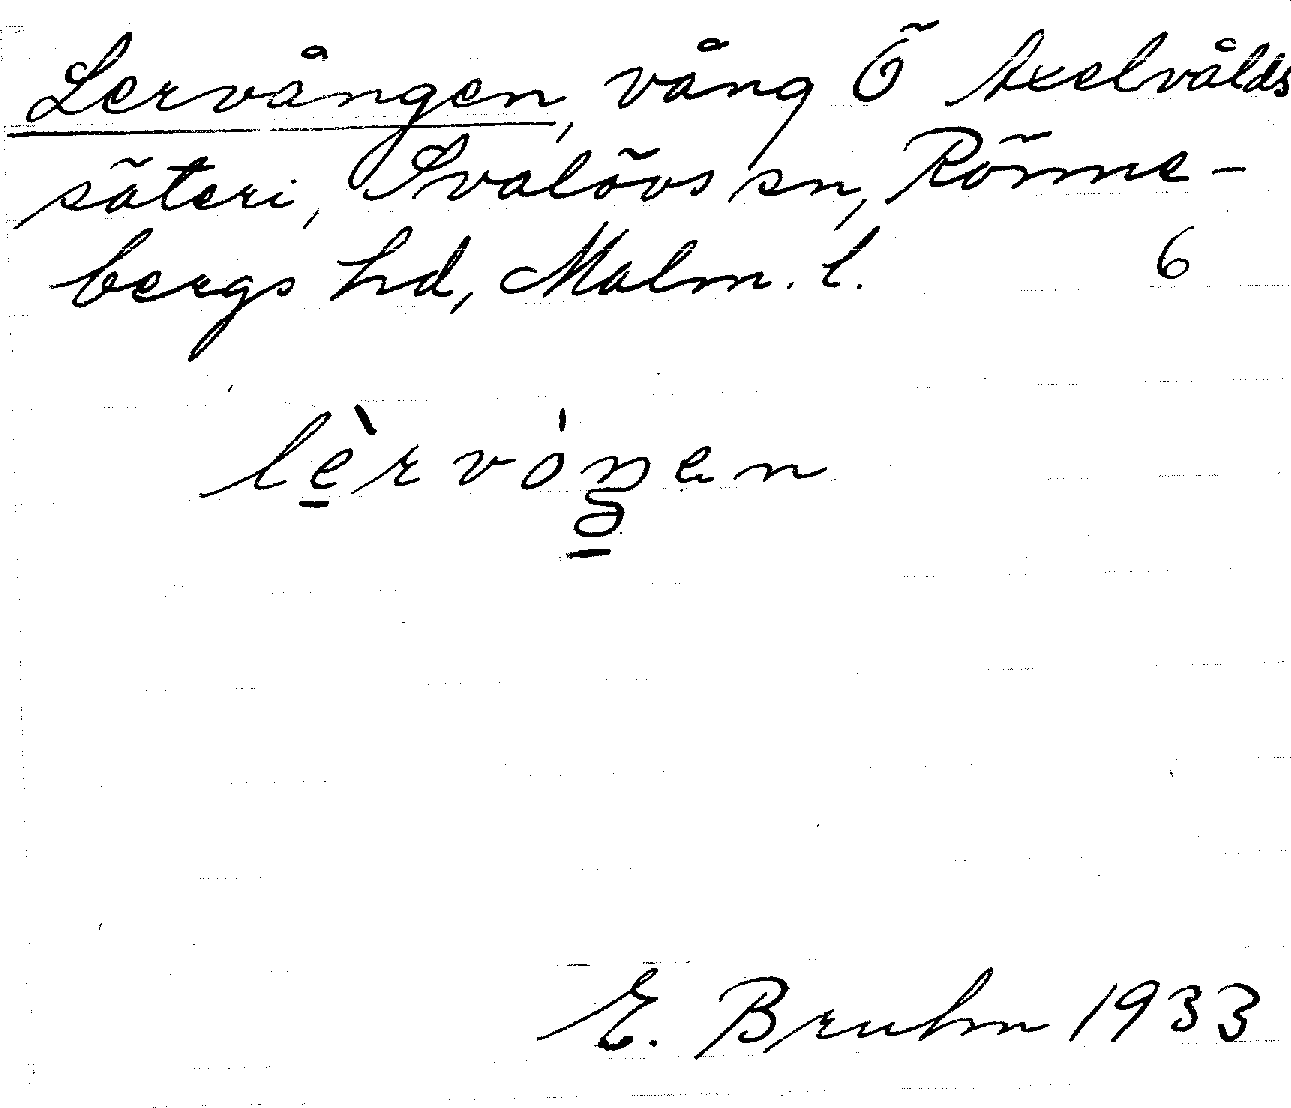 Lervången, vång Ö Axelvålds
säteri, Svalövs sn, Rönne-
bergs hd, Malm. l. 6
lèrvȯŋen
E. Bruhn 1933